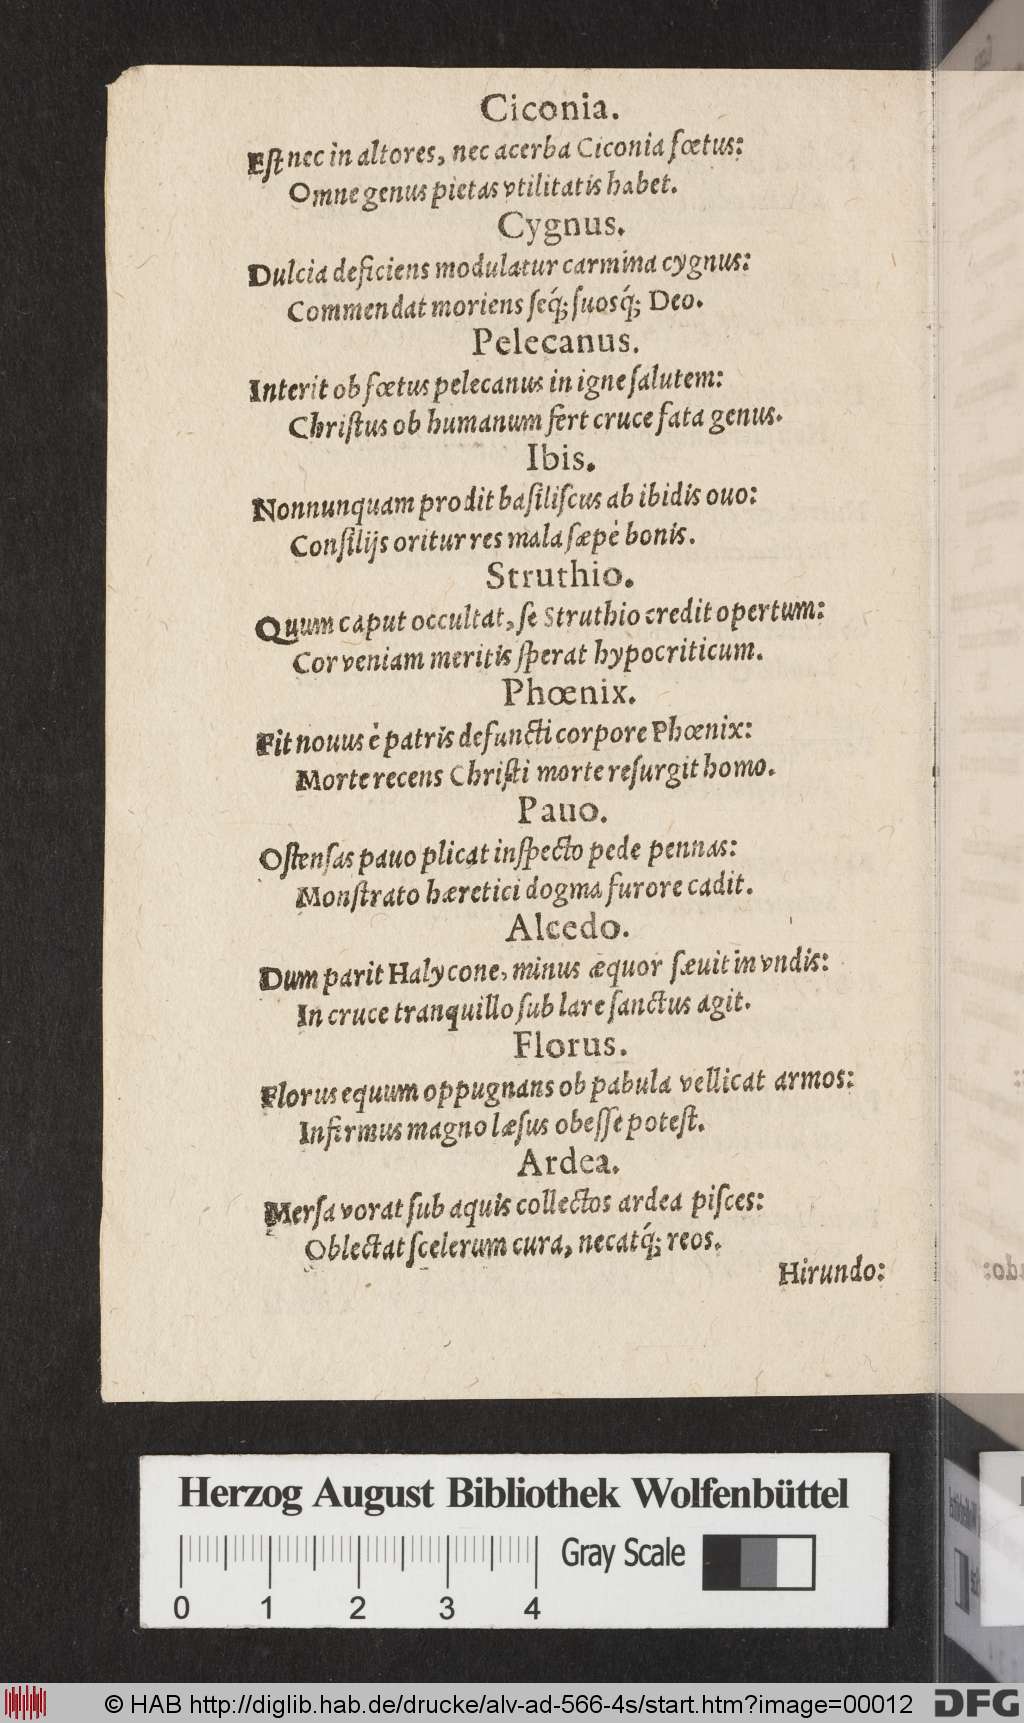 Ciconia.
Eſt nec in altores, nec acerba Ciconia fœtus:
Omne genus pietas vtilitatis habet.
Cygnus.
Dulcia deficiens modulatur carmina cygnus:
Commendat moriens ſeq́; ſuosq́; Deo.
Pelecanus.
Interit ob fœtus pelecanus in igne ſalutem:
Chriſtus ob humanum fert cruce fata genus.
Ibis.
Nonnunquam prodit baſiliſcus ab ibidis ouo:
Conſilijs oritur res mala ſæpè bonis.
Struthio.
Quum caput occultat, ſe Struthio credit opertum:
Cor veniam meritis ſperat hypocriticum.
Phœnix.
Fit nouus è patris defuncti corpore Phœnix:
Morte recens Chriſti morte reſurgit homo.
Pauo.
Oſtenſas pauo plicat inſpecto pede pennas:
Monſtrato hæretici dogma furore cadit.
Alcedo.
Dum parit Halycone, minus æquor ſæuit in vndis:
In cruce tranquillo ſub lare ſanctus agit.
Florus.
Florus equum oppugnans ob pabula vellicat armos:
Infirmus magno læſus obeſſe poteſt.
Ardea.
Merſa vorat ſub aquis collectos ardea piſces:
Oblectat ſcelerum cura, necatq́; reos.
Hirundo:
Herzog August Bibliothek Wolfenbüttel
Gray Scale
0 1 2 3 4
© HAB http://diglib.hab.de/drucke/alv-ad-566-4s/start.htm?image=00012
DFG